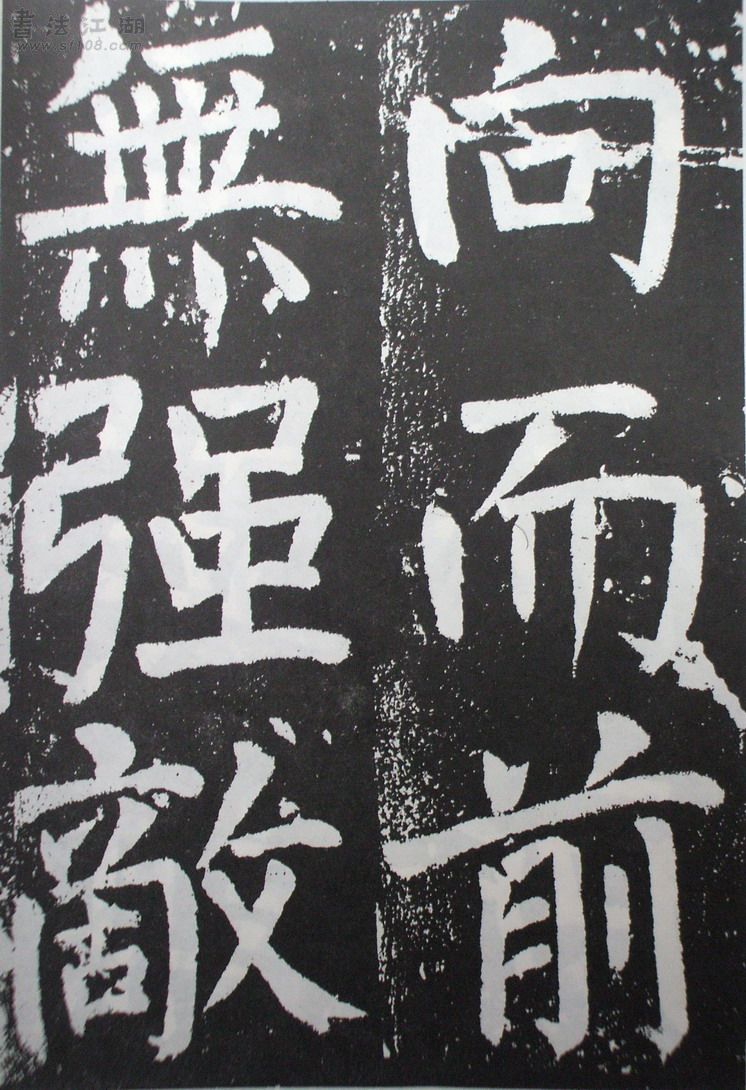 向而前
無强敵
書法江湖
www.sf108.com